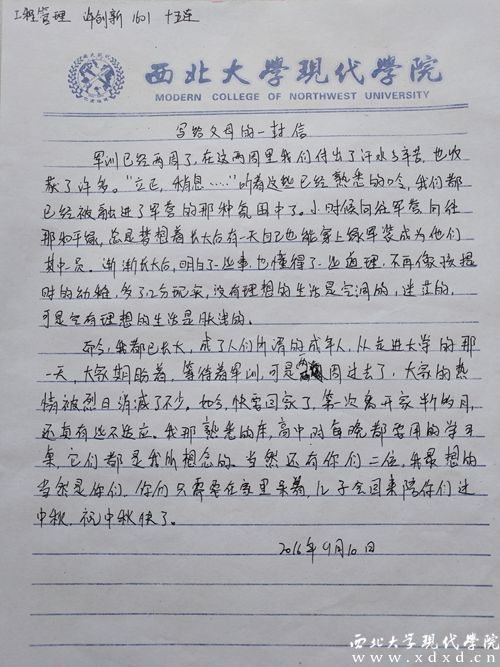 工程管理 许创新 1601 十五连
西北大学现代学院
MODERN COLLEGE OF NORTHWEST UNIVERSITY
写给父母的一封信
军训已经两周了,在这两周里我们付出了汗水与辛苦,也收
获了许多。"立正,稍息……"听着这些已经熟悉的口令,我们都
已经被融进了军营的那种氛围中了。小时候向往军营向往
那和平绿,总是梦想着长大后有一天自己也能穿上绿军装成为他们
其中一员。渐渐长大后,明白了一些事,也懂得了一些道理,不再像孩提
时的幼稚,多了一分现实,没有理想的生活是空洞的,迷茫的,
可是空有理想的生活是肤浅的。
如今,我都已长大,成了人们所谓的成年人,从走进大学的那
一天,大家期盼着,等待着军训,可是两周过去了,大家的热
情被烈日消减了不少。如今,快要回家了,第一次离开家半个月,
还真有些不适应。我那熟悉的床,高中时每晚都要用的学习
桌,它们都是我所想念的。当然还有你们二位,我最想的
当然是你们,你们只需要在家里呆着,儿子会回来陪你们过
中秋,祝中秋快了。
2016年9月10日
西北大学现代学院
www.xdxd.cn